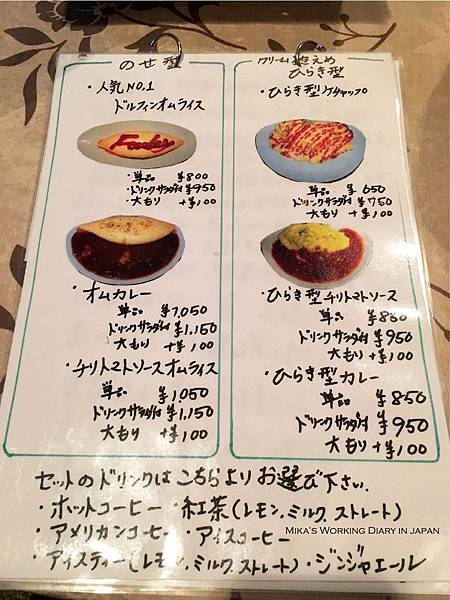 のせ型
・人気NO.1
ドルフィンオムライス
・単品 ¥800
・ドリンクサラダ付 ¥950
・大もり +¥100
・オムカレー
単品 ¥1,050
ドリンクサラダ付 ¥1,150
大もり +¥100
・チリトマトソースオムライス
単品 ¥1,050
ドリンクサラダ付 ¥1,150
大もり +¥100
クリーム控えめ
ひらき型
・ひらき型ケチャップ
単品 ¥650
ドリンクサラダ付 ¥750
大もり +¥100
・ひらき型チリトマトソース
単品 ¥850
ドリンクサラダ付 ¥950
大もり +¥100
・ひらき型カレー
単品 ¥850
ドリンクサラダ付 ¥950
大もり +¥100
セットのドリンクはこちらよりお選び下さい.
・ホットコーヒー ・紅茶(レモン,ミルク,ストレート)
・アメリカンコーヒー ・アイスコーヒー
・アイスティー(レモン,ミルク,ストレート)・ジンジャエール
MIKA'S WORKING DIARY IN JAPAN